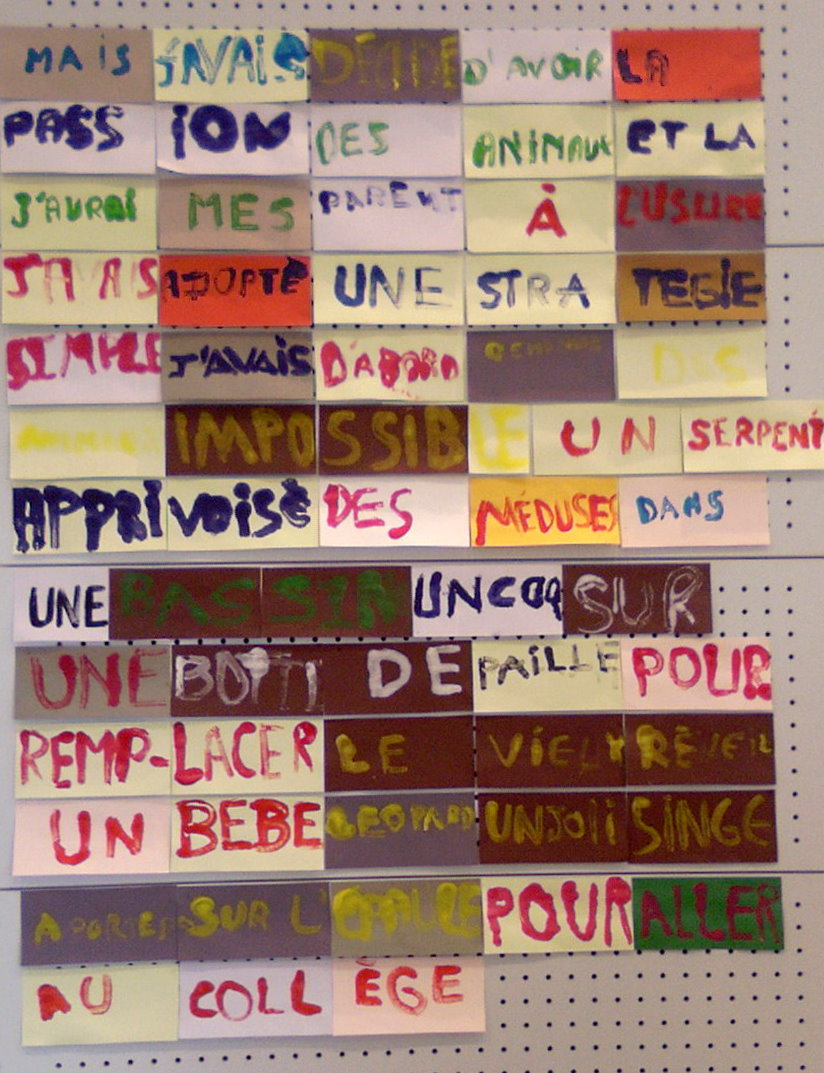 MAIS J'AVAIS DÉCIDE D'AVOIR LA
PASS ION DES ANIMAUX ET LA
J'AURAI MES PARENT À L'USURE
J'AVAIS ADOPTÉ UNE STRA TEGIE
SIMPLE J'AVAIS D'ABORD DEMANDE DES
ANIMAUX IMPOSSIBLE UN SERPENT
APPRIVOISÉ DES MÉDUSES DANS
UNE BASSIN UN COQ SUR
UNE BOTTE DE PAILLE POUR
REMP-LACER LE VIEUX RÉVEIL
UN BEBE LEOPARD UN JOLI SINGE
A PORTER SUR L'ÉPAULE POUR ALLER
AU COLL ÈGE